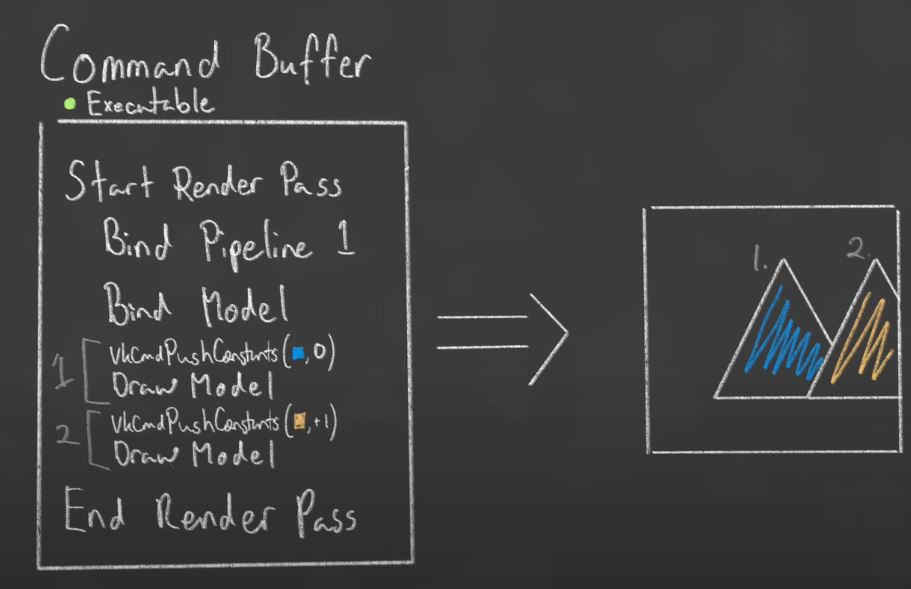 Command Buffer
• Executable
Start Render Pass
Bind Pipeline 1
Bind Model
1 [ vkCmdPushConstants(■, 0)
Draw Model
2 [ vkCmdPushConstants(■, +1)
Draw Model
End Render Pass
1.
2.